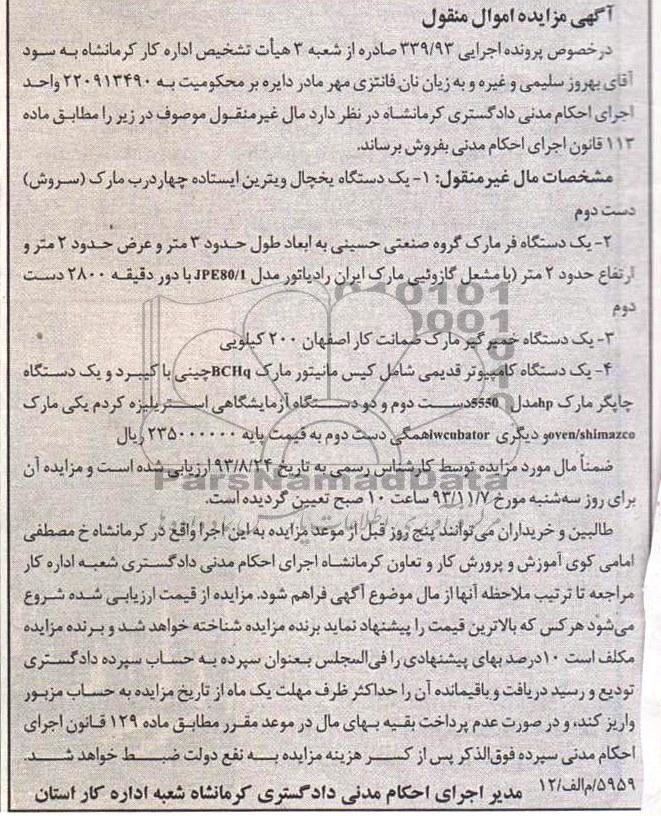 آگهی مزایده اموال منقول
درخصوص پرونده اجرایی ۳۳۹/۹۳ صادره از شعبه ۳ هیأت تشخیص اداره کار کرمانشاه به سود
آقای بهروز سلیمی و غیره و به زیان نان فانتزی مهر مادر دایره بر محکومیت به ۲۲۰۹۱۳۴۹۰ واحد
اجرای احکام مدنی دادگستری کرمانشاه در نظر دارد مال غیرمنقول موصوف در زیر را مطابق ماده
۱۱۳ قانون اجرای احکام مدنی بفروش برساند.
مشخصات مال غیرمنقول: ۱- یک دستگاه یخچال ویترین ایستاده چهاردرب مارک (سروش)
دست دوم
۲- یک دستگاه فر مارک گروه صنعتی حسینی به ابعاد طول حدود ۳ متر و عرض حدود ۲ متر و
ارتفاع حدود ۲ متر (با مشعل گازوئیی مارک ایران رادیاتور مدل JPE80/1 با دور دقیقه ۲۸۰۰ دست
دوم
۳- یک دستگاه خمیرگیر مارک ضمانت کار اصفهان ۲۰۰ کیلویی
۴- یک دستگاه کامپیوتر قدیمی شامل کیس مانیتور مارک BCHqچینی با کیبرد و یک دستگاه
چاپگر مارک hpمدل 5550دست دوم و دو دستگاه آزمایشگاهی استریلیزه کردم یکی مارک
oven/shimazcoو دیگری iwcubatorهمگی دست دوم به قیمت پایه ۲۳۵۰۰۰۰۰۰ ریال
ضمناً مال مورد مزایده توسط کارشناس رسمی به تاریخ ۹۳/۸/۲۴ ارزیابی شده است و مزایده آن
برای روز سه‌شنبه مورخ ۹۳/۱۱/۷ ساعت ۱۰ صبح تعیین گردیده است.
طالبین و خریداران می‌توانند پنج روز قبل از موعد مزایده به این اجرا واقع در کرمانشاه خ مصطفی
امامی کوی آموزش و پرورش کار و تعاون کرمانشاه اجرای احکام مدنی دادگستری شعبه اداره کار
مراجعه تا ترتیب ملاحظه آنها از مال موضوع آگهی فراهم شود. مزایده از قیمت ارزیابی شده شروع
می‌شود هرکس که بالاترین قیمت را پیشنهاد نماید برنده مزایده شناخته خواهد شد و برنده مزایده
مکلف است ۱۰درصد بهای پیشنهادی را فی‌المجلس بعنوان سپرده به حساب سپرده دادگستری
تودیع و رسید دریافت و باقیمانده آن را حداکثر ظرف مهلت یک ماه از تاریخ مزایده به حساب مزبور
واریز کند، و در صورت عدم پرداخت بقیه بهای مال در موعد مقرر مطابق ماده ۱۲۹ قانون اجرای
احکام مدنی سپرده فوق‌الذکر پس از کسر هزینه مزایده به نفع دولت ضبط خواهد شد.
۵۹۵۹/م‌الف/۱۲ مدیر اجرای احکام مدنی دادگستری کرمانشاه شعبه اداره کار استان
ParsNamadData